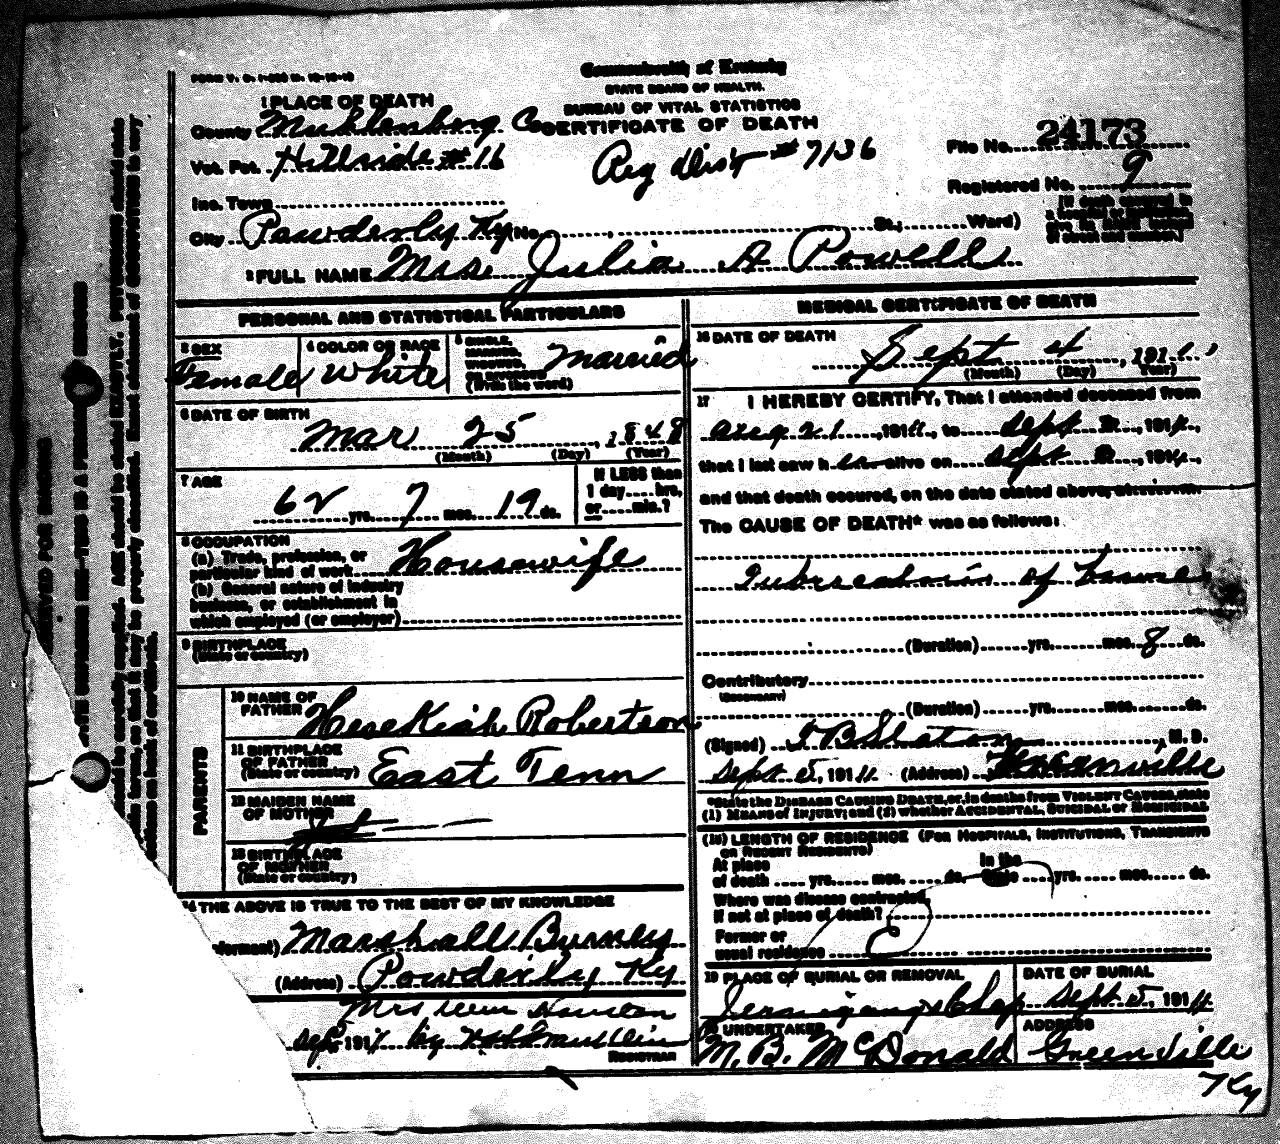 FORM V. S. 1-
Commonwealth of Kentucky
STATE BOARD OF HEALTH.
BUREAU OF VITAL STATISTICS
CERTIFICATE OF DEATH
1 PLACE OF DEATH
County Muhlenberg Co
Vot. Pct. Hillside #16
Reg Dist # 7136
File No. 24173
Registered No. 9
Inc. Town
City Powderly Ky (No. , St.; Ward)
2 FULL NAME Mrs. Julia A Powell
PERSONAL AND STATISTICAL PARTICULARS
3 SEX Female
4 COLOR OR RACE White
5 SINGLE, MARRIED, WIDOWED OR DIVORCED (Write the word) Married
6 DATE OF BIRTH
Mar 25, 1848
(Month) (Day) (Year)
7 AGE
62 yrs. 7 mos. 19 ds.
If LESS than 1 day hrs, or min.?
8 OCCUPATION
(a) Trade, profession, or particular kind of work Housewife
(b) General nature of industry
business, or establishment in
which employed (or employer)
9 BIRTHPLACE
(State or country)
PARENTS
10 NAME OF FATHER Hesekiah Robertson
11 BIRTHPLACE OF FATHER (State or country) East Tenn
12 MAIDEN NAME OF MOTHER
13 BIRTHPLACE OF MOTHER (State or country)
14 THE ABOVE IS TRUE TO THE BEST OF MY KNOWLEDGE
(Informant) Marshall Burney
(Address) Powderly Ky
Mrs
Sept 1911 by
REGISTRAR
MEDICAL CERTIFICATE OF DEATH
16 DATE OF DEATH
Sept 4, 1911
(Month) (Day) (Year)
17 I HEREBY CERTIFY, That I attended deceased from
Aug 21, 1911, to Sept 2, 1911,
that I last saw h er alive on Sept 2, 1911,
and that death occured, on the date stated above,
The CAUSE OF DEATH* was as follows:
of
(Duration) yrs. mos. 8 ds.
Contributory
(SECONDARY)
(Duration) yrs. mos. ds.
(Signed) J B Slaton, M. D.
Sept 5, 1911 (Address) Greenville
*State the DISEASE CAUSING DEATH, or, in deaths from VIOLENT CAUSES, state
(1) MEANS OF INJURY; and (2) whether ACCIDENTAL, SUICIDAL or HOMICIDAL
(18) LENGTH OF RESIDENCE (FOR HOSPITALS, INSTITUTIONS, TRANSIENTS
OR RECENT RESIDENTS)
At place of death yrs. mos. ds. In the State yrs. mos. ds.
Where was disease contracted,
if not at place of death?
Former or
usual residence
19 PLACE OF BURIAL OR REMOVAL
Jernigangs Chap
DATE OF BURIAL
Sept 5, 1911
20 UNDERTAKER
M. B. McDonald
ADDRESS
Greenville
Ky